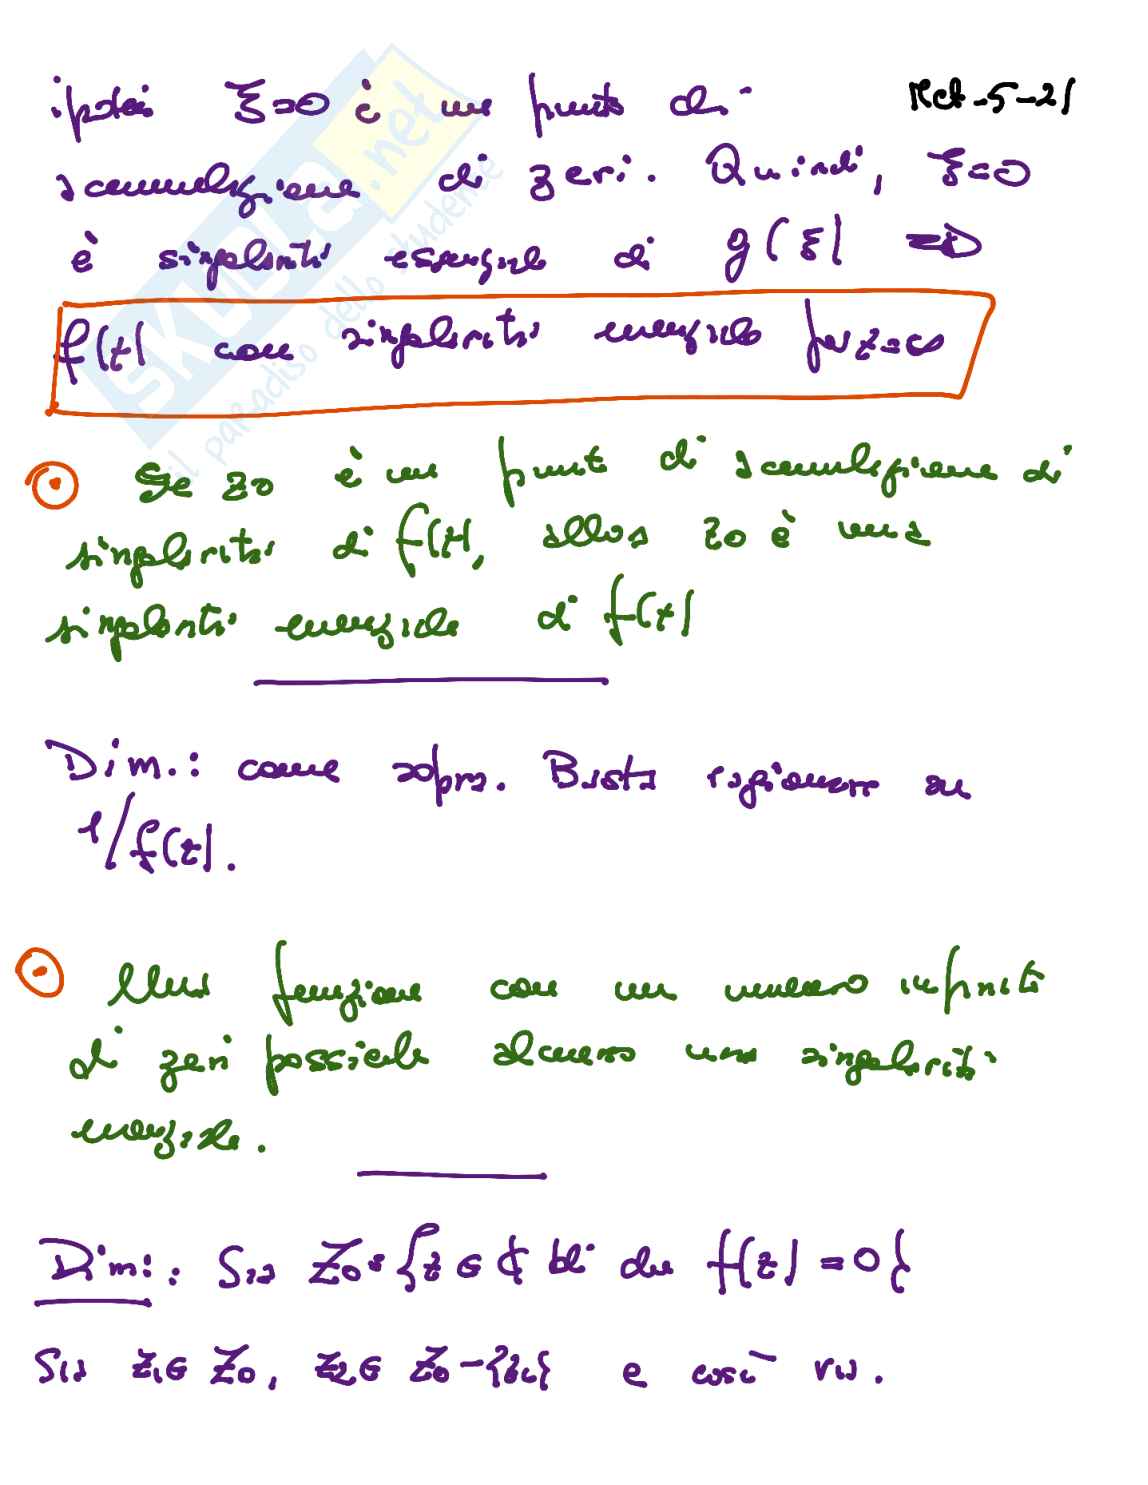 ipotesi ξ=0 è un punto di
Met-5-21
accumulazione di zeri. Quindi, ξ=0
è singolarità essenziale di g(ξ) ⇒
f(z) con singolarità essenziale per z=∞
Se z0 è un punto di accumulazione di
singolarità di f(z), allora z0 è una
singolarità essenziale di f(z)
Dim.: come sopra. Basta ragionare su
1/f(z).
Una funzione con un numero infinito
di zeri possiede almeno una singolarità
essenziale.
Dim.: Sia Z0={z∈ℂ tali che f(z)=0}
Sia z1∈Z0, z2∈Z0-{z1} e così via.
SKUOLA.net
il paradiso dello studente